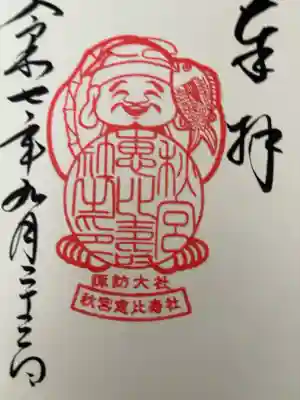 奉拝
秋宮
惠比壽
社之印
諏訪大社
秋宮恵比寿社
令和七年九月二十三日